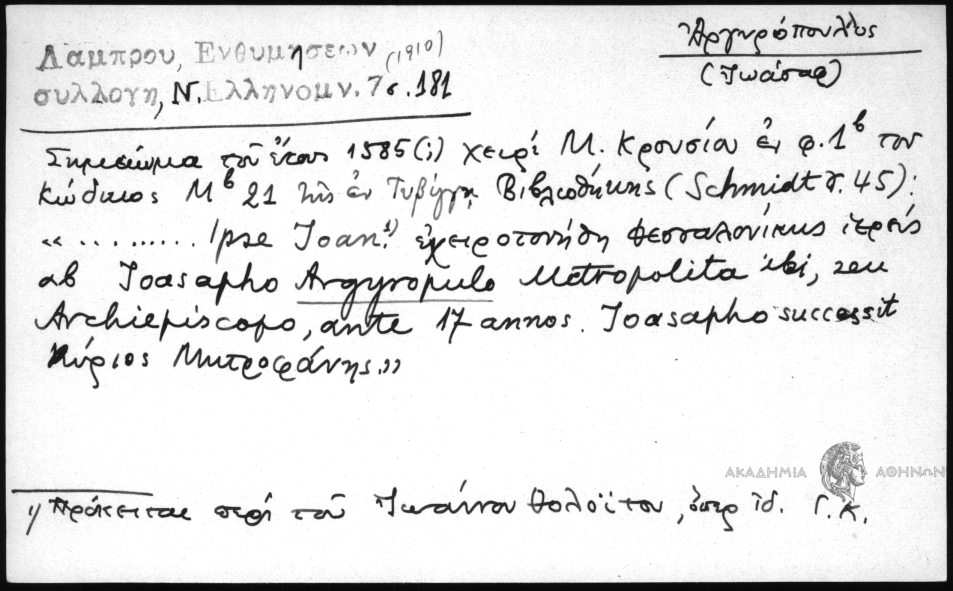 Ἀργυρόπουλος
(Ἰωάσαφ)
Λαμπρου, Ενθυμησεων (1910)
συλλογη, Ν. Ελληνομν. 7 σ. 181
Σημείωμα τοῦ ἔτους 1585 (;) χειρὶ Μ. Κρουσίου ἐν φ. 1β του
κώδικος Μβ 21 τῆς ἐν Τυβίγγῃ Βιβλιοθήκης (Schmidt σ. 45):
«.......... ipse Ioan.¹) ἐχειροτονήθη Θεσσαλονίκης ἱερεύς
ab Ioasapho Argyropulo Metropolita ibi, seu
Archiepiscopo, ante 17 annos. Ioasapho successit
Κύριος Μητροφάνης.»
ΑΚΑΔΗΜΙΑ ΑΘΗΝΩΝ
1) Πρόκειται περὶ τοῦ Ἰωάννου Θολοΐτου, ὅπερ ἰδ. Γ. Κ.